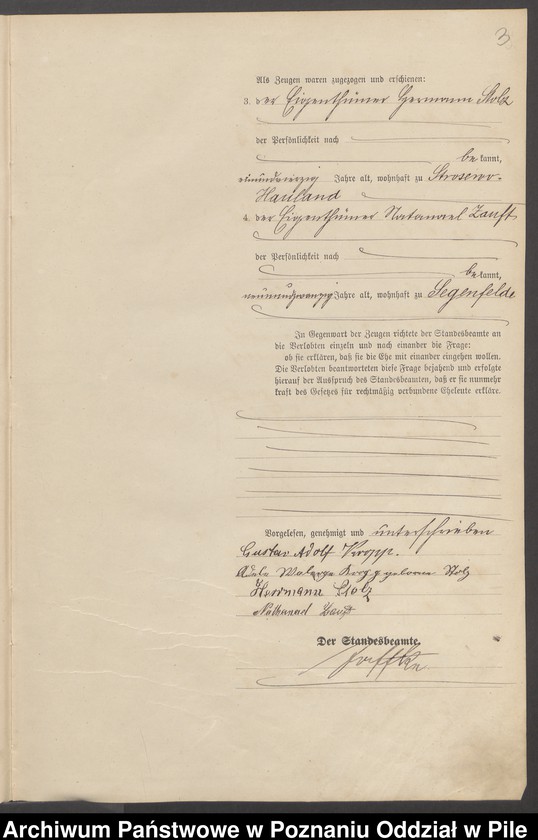 3
Als Zeugen waren zugezogen und erschienen:
3. der Eigenthümer Hermann Stolz
der Persönlichkeit nach
be kannt,
einundvierzig Jahre alt, wohnhaft zu Strosewo-
Hauland
4. der Eigenthümer Natanael Zanft
der Persönlichkeit nach
be kannt,
neunundzwanzig Jahre alt, wohnhaft zu Segenfelde
In Gegenwart der Zeugen richtete der Standesbeamte an
die Verlobten einzeln und nach einander die Frage:
ob sie erklären, daß sie die Ehe mit einander eingehen wollen.
Die Verlobten beantworteten diese Frage bejahend und erfolgte
hierauf der Ausspruch des Standesbeamten, daß er sie nunmehr
kraft des Gesetzes für rechtmäßig verbundene Eheleute erkläre.
Vorgelesen, genehmigt und unterschrieben
Gustav Adolf Kropp.
geborene Stolz
Herrmann Stolz
Der Standesbeamte.
Archiwum Państwowe w Poznaniu Oddział w Pile